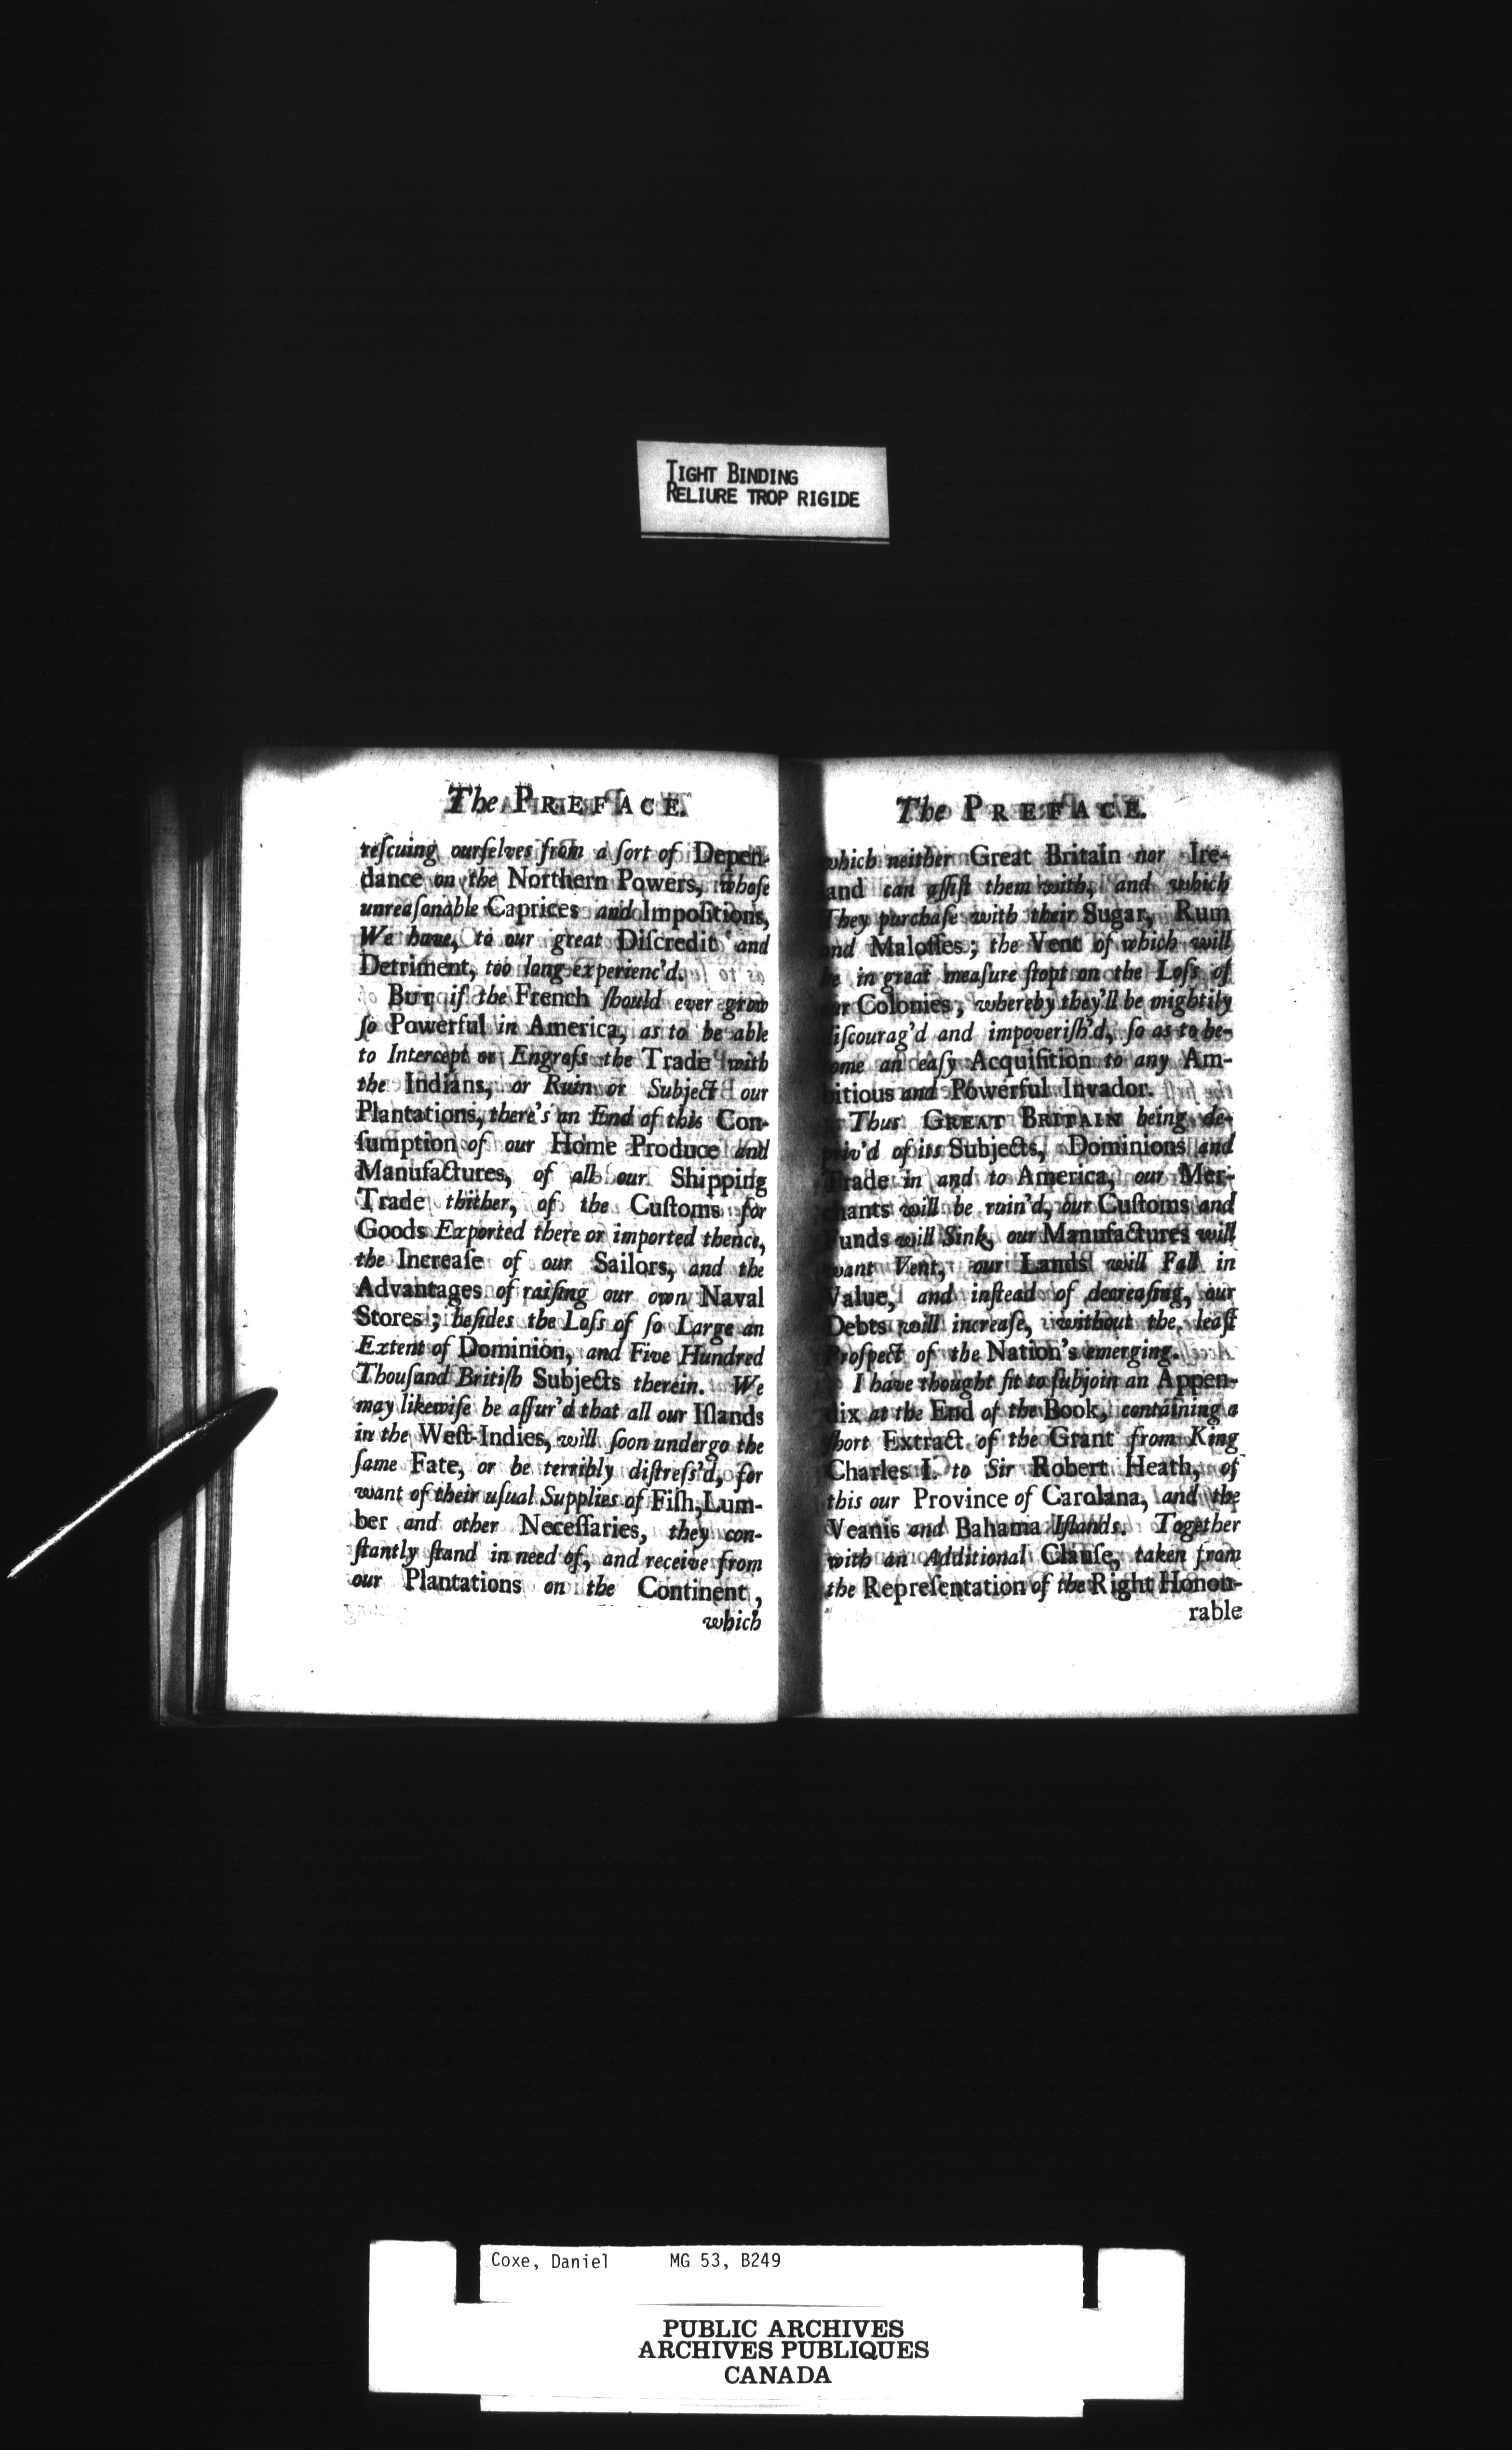 TIGHT BINDING
RELIURE TROP RIGIDE
The PREFACE.
reſcuing ourſelves from a ſort of Depen-
dance on the Northern Powers, whoſe
unreaſonable Caprices and Impoſitions,
We have, to our great Diſcredit and
Detriment, too long experienc'd.
But if the French ſhould ever grow
ſo Powerful in America, as to be able
to Intercept or Engroſs the Trade with
the Indians, or Ruin or Subject our
Plantations, there's an End of this Con-
ſumption of our Home Produce and
Manufactures, of all our Shipping
Trade thither, of the Cuſtoms for
Goods Exported there or imported thence,
the Increaſe of our Sailors, and the
Advantages of raiſing our own Naval
Stores; beſides the Loſs of ſo Large an
Extent of Dominion, and Five Hundred
Thouſand Britiſh Subjects therein. We
may likewiſe be aſſur'd that all our Iſlands
in the Weſt-Indies, will ſoon undergo the
ſame Fate, or be terribly diſtreſs'd, for
want of their uſual Supplies of Fiſh, Lum-
ber and other Neceſſaries, they con-
ſtantly ſtand in need of, and receive from
our Plantations on the Continent,
which
The PREFACE.
which neither Great Britain nor Ire-
and can aſſiſt them with, and which
They purchaſe with their Sugar, Rum
and Maloſſes; the Vent of which will
be in great meaſure ſtopt on the Loſs of
ur Colonies, whereby they'll be mightily
iſcourag'd and impoveriſh'd, ſo as to be-
ome an eaſy Acquiſition to any Am-
bitious and Powerful Invador.
Thus GREAT BRITAIN being de-
priv'd of its Subjects, Dominions and
Trade in and to America, our Mer-
chants will be ruin'd, our Cuſtoms and
Funds will Sink, our Manufactures will
want Vent, our Lands will Fall in
Value, and inſtead of decreaſing, our
Debts will increaſe, without the leaſt
Proſpect of the Nation's emerging.
I have thought fit to ſubjoin an Appen-
dix at the End of the Book, containing a
ſhort Extract of the Grant from King
Charles I. to Sir Robert Heath, of
this our Province of Carolana, and the
Veanis and Bahama Iſlands. Together
with an Additional Clauſe, taken from
the Repreſentation of the Right Honou-
rable
Coxe, Daniel MG 53, B249
PUBLIC ARCHIVES
ARCHIVES PUBLIQUES
CANADA